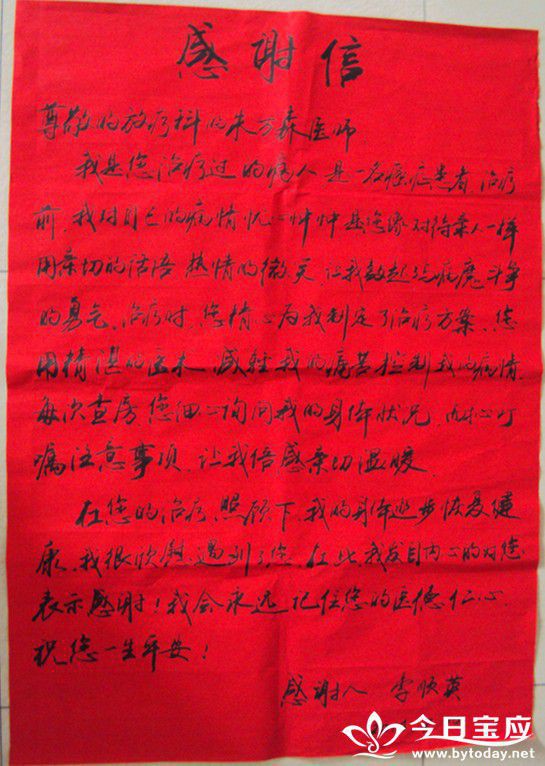 感谢信
尊敬的放疗科的朱万森医师
我是您治疗过的病人是一名癌症患者,治疗
前,我对自已的病情忧心忡忡是您像对待亲人一样
用亲切的话语 热情的微笑 让我鼓起了与病魔斗争
的勇气,治疗时,您精心为我制定了治疗方案,您
用精湛的医术 减轻我的痛苦控制我的病情,
每次查房您细心询问我的身体状况,耐心叮
嘱注意事项,让我倍感亲切温暖
在您的治疗照顾下,我的身体逐步恢复健
康,我很欣慰遇到了您,在此,我发自内心的对您
表示感谢!我会永远记住您的医德仁心,
祝您一生平安!
感谢人 李顺英
今日宝应
www.bytoday.net